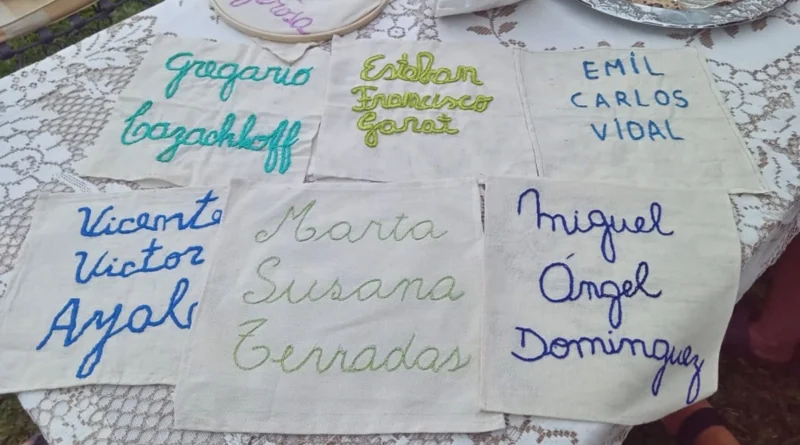 Gregario
Cazachkoff
Esteban
Francisco
Garat
EMIL
CARLOS
VIDAL
Vicente
Victor
Marta
Susana
Terradas
Miguel
Ángel
Dominguez